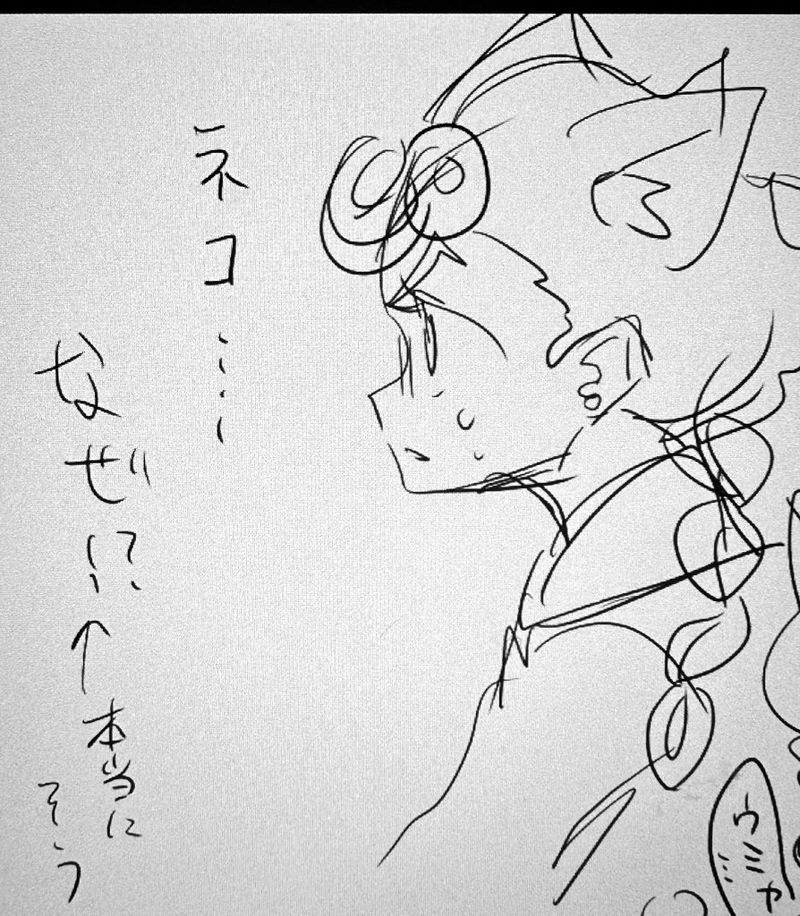 ネコ…
なぜ!?
↑本当に
そう
ウミャ